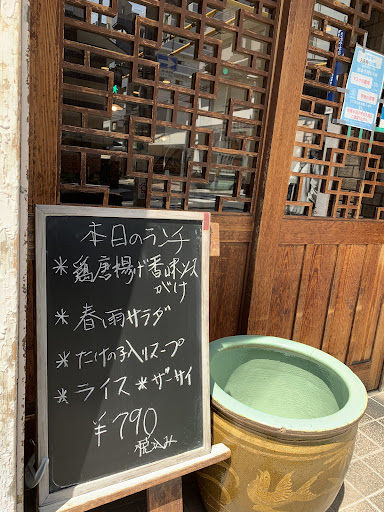 本日のランチ
*鶏唐揚げ香味ソース
がけ
*春雨サラダ
*たけの子入りスープ
*ライス*ザーサイ
¥790
税込み